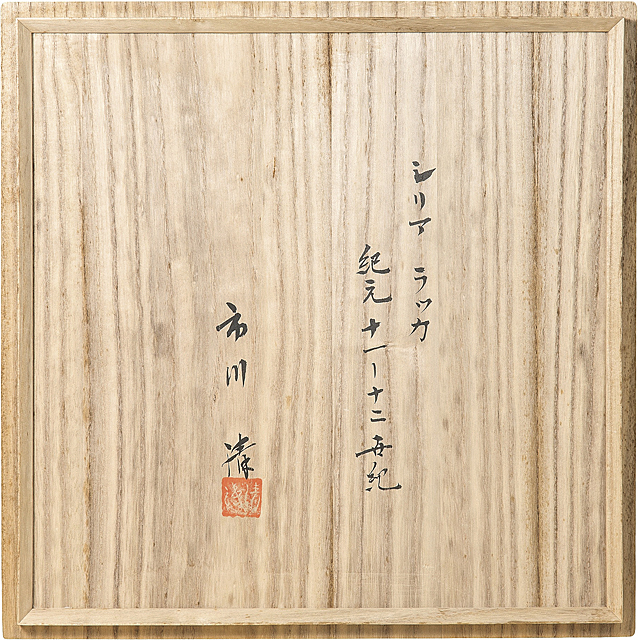 シリア ラッカ
紀元十一ー十二世紀
市川 清